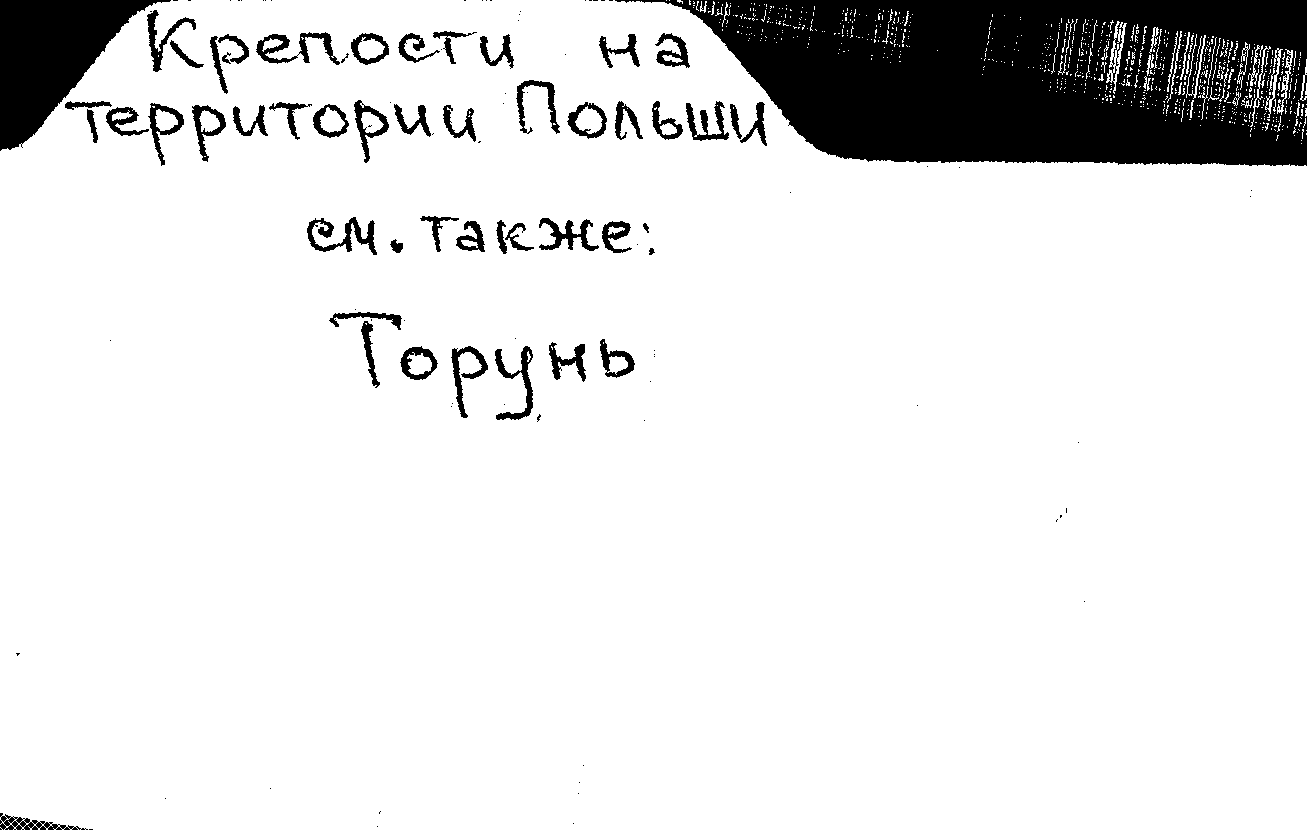 Крепости на
территории Польши
см. также:
Торунь